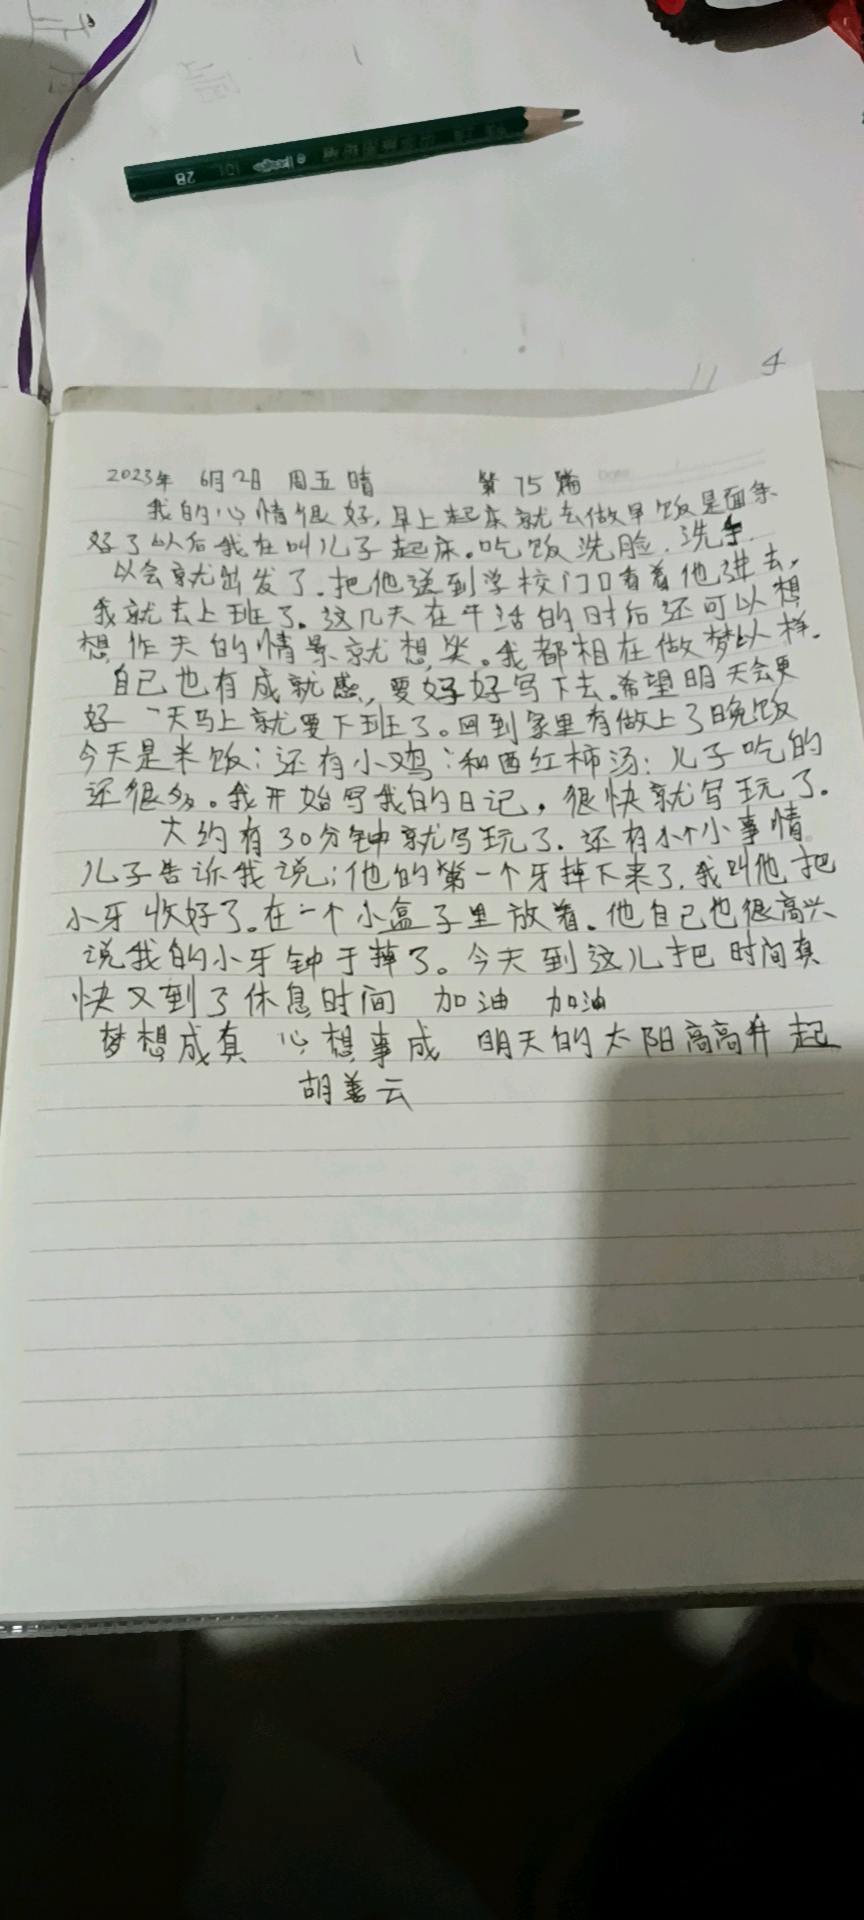 2B 101
4
2023年 6月2日 周五 晴 第75篇
我的心情很好,早上起床就去做早饭是面条
好了以后我在叫儿子起床.吃饭洗脸.洗手.
以会就出发了.把他送到学校门口看着他进去,
我就去上班了。这几天在干活的时后还可以想
想作天的情景就想笑。我都相在做梦以样.
自己也有成就感,要好好写下去.希望明天会更
好 一天马上就要下班了。回到家里有做上了晚饭
今天是米饭:还有小鸡:和西红柿汤:儿子吃的
还很多。我开始写我的日记,很快就写玩了.
大约有30分钟就写玩了.还有个小事情
儿子告诉我说:他的第一个牙掉下来了.我叫他把
小牙收好了.在一个小盒子里放着.他自己也很高兴
说我的小牙钟于掉了。今天到这儿把 时间真
快又到了休息时间 加油 加油
梦想成真 心想事成 明天的太阳高高升起
胡善云